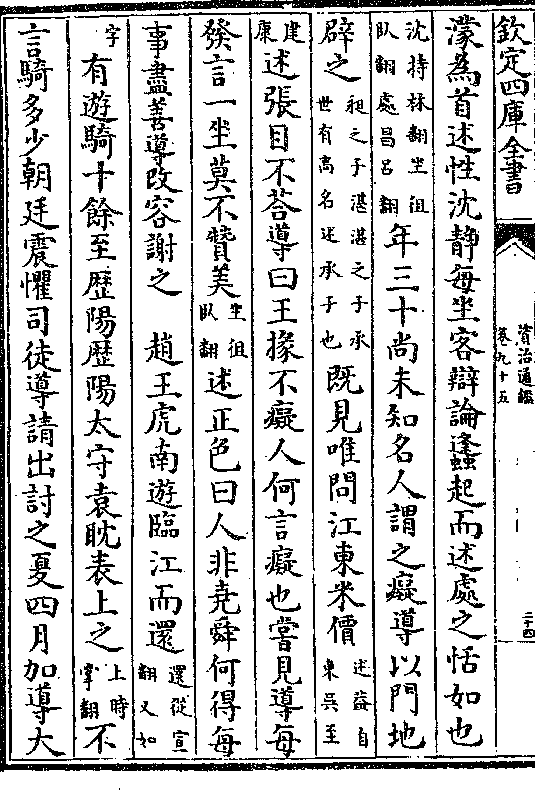 欽定四庫全書
資治通鑑
卷九十五
二十四
濛為首述性沈静每坐客辯論蠭起而述處之恬如也
沈持林翻坐徂
臥翻處昌呂翻
年三十尚未知名人謂之癡導以門地
辟之
昶之子湛湛之子承
世有高名述承子也
既見唯問江東米價
述蓋自
東吳至
建
康
述張目不荅導曰王掾不癡人何言癡也嘗見導每
發言一坐莫不贊美
坐徂
臥翻
述正色曰人非堯舜何得每
事盡善導改容謝之　趙王虎南遊臨江而還
還從宣
翻又如
字
有遊騎十餘至歴陽歴陽太守袁耽表上之
上時
掌翻
不
言騎多少朝廷震懼司徒導請出討之夏四月加導大